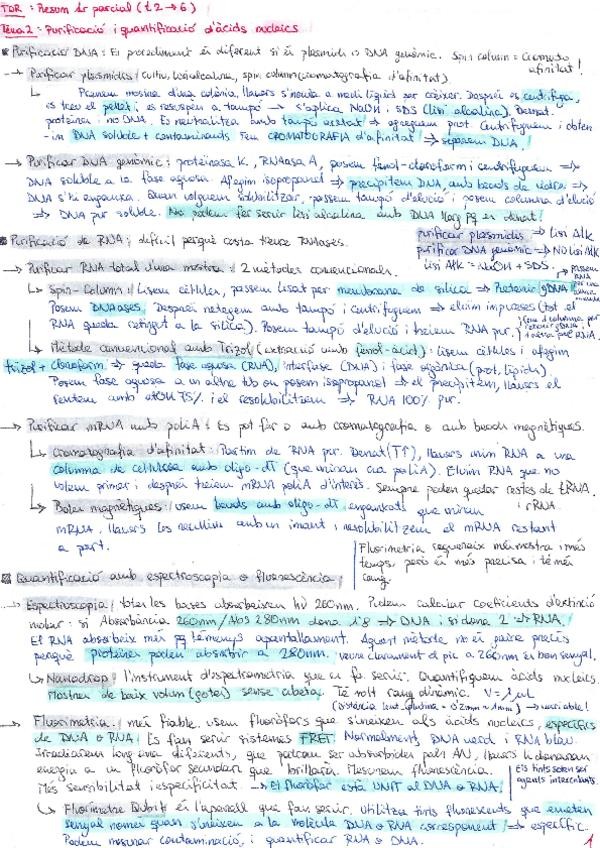 TDR : Resum 1r parcial (t.2 → 6)
Tema 2 : Purificació i quantificació d'àcids nucleics
Purificació DNA : El procediment és diferent si és plasmidi o DNA genòmic. Spin column = cromato afinitat!
→ Purificar plasmidis / cultiu, lisi alcalina, spin column (cromatografia d'afinitat).
Prenem mostra d'una colònia, llavors s'inocula a medi líquid per créixer. Després es centrifuga,
es treu el pellet i es resuspèn a tampó → s'aplica NaOH i SDS (lisi alcalina). Desnat.
proteïnes i no DNA. Es neutralitza amb tampó acetat → agreguem prot. Centrifuguem i obten-
im DNA soluble + contaminants. Fem CROMATOGRAFIA d'afinitat → separem DNA!
→ Purificar DNA genòmic : proteinasa K, RNAasa A, posem fenol-cloroform i centrifuguem ⇒
DNA soluble a la fase aquosa. Afegim isopropanol ⇒ precipitem DNA, amb beads de vidre ⇒
DNA s'hi enganxa. Quan volguem solubilitzar, passem tampó d'elució i posem columna d'elució
⇒ DNA pur soluble. No podem fer servir lisi alcalina amb DNA llarg pq es desnat!
purificar plasmidis ⇒ lisi Alk
purificar DNA genòmic ⇒ NO lisi Alk
lisi Alk = NaOH + SDS
Purificació de RNA : difícil perquè costa treure RNAases.
→ Purificar RNA total d'una mostra : 2 mètodes convencionals.
Spin-Column : Lisem cèl·lules, passem lisat per membrana de sílice ⇒ Retenir gDNA
Posem DNAases. Després netegem amb tampó i centrifuguem ⇒ eluim impureses (tot el
RNA queda retingut a la sílice). Posem tampó d'elució i treiem RNA pur.
Mètode convencional amb Trizol (extracció amb fenol-àcid) : Lisem cèl·lules i afegim
trizol + cloroform ⇒ queda fase aquosa (RNA), interfase (DNA) i fase orgànica (prot, lípids)
Posem fase aquosa a un altre tub on posem isopropanol ⇒ el precipitem, llavors el
rentem amb etOH 75% i el resolubilitzem ⇒ RNA 100% pur.
→ Purificar mRNA amb poliA : Es pot fer o amb cromatografia o amb beads magnètiques.
Cromatografia d'afinitat : Partim de RNA pur. Desnat (T↑), llavors unim RNA a una
columna de cel·lulosa amb oligo-dT (que uniran cua poliA). Eluim RNA que no
volem primer i després treiem mRNA poliA d'interès. Sempre poden quedar restes de tRNA
i rRNA.
Boles magnètiques : usem beads amb oligo-dT enganxats que uniran
mRNA. Llavors les recullim amb un imant i resolubilitzem el mRNA restant
a part.
Fluorimetria requereix més mostra i més
temps, però és més precisa i té més
rang.
Quantificació amb espectroscopia o fluorescència :
→ Espectroscopia : totes les bases absorbeixen hv 260nm. Podem calcular coeficients d'extinció
molar : si Absorbància 260nm / Abs 280nm dona 1'8 ⇒ DNA i si dona 2 ⇒ RNA.
El RNA absorbeix més pq té menys apantallament. Aquest mètode no és gaire precís
perquè proteïnes poden absorbir a 280nm. Veure clarament el pic a 260nm és bon senyal.
Nanodrop : l'instrument d'espectrometria que es fa servir. Quantifiquem àcids nucleics.
Mostres de baix volum (gotes) sense cubeta. Té molt rang dinàmic. V = 1 µL
→ Fluorimetria : més fiable. Usem fluoròfors que s'uneixen als àcids nucleics, específics
de DNA o RNA! Es fan servir sistemes FRET. Normalment, DNA verd i RNA blau.
Irradiarem long. ona diferents, que podran ser absorbides pels AN, llavors li donaran
energia a un fluoròfor secundari que brillarà. Mesurem fluorescència.
Més sensibilitat i especificitat. → El fluoròfor està UNIT al DNA o RNA!
Els tints solen ser
agents intercalants.
Fluorímetre Qubit : és l'aparell que fan servir. Utilitza tints fluorescents que emeten
senyal només quan s'uneixen a la molècula DNA o RNA corresponent! ⇒ específic.
Podem mesurar contaminació, i quantificar RNA o DNA.
1